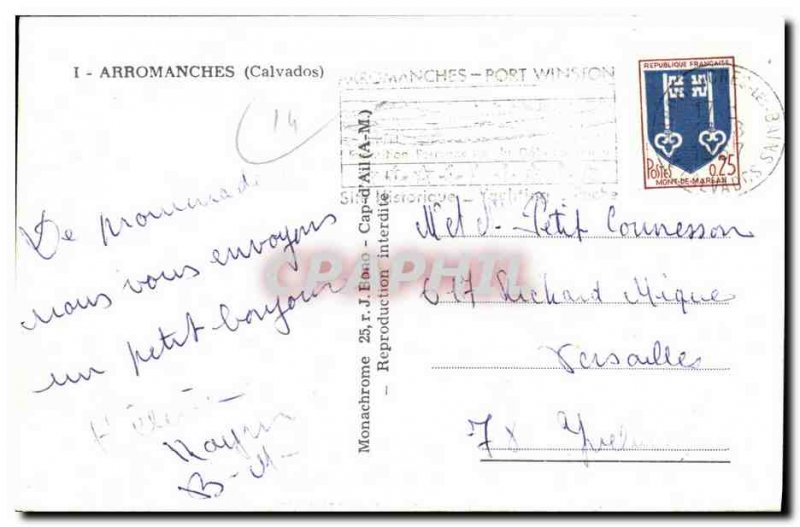 I - ARROMANCHES (Calvados)
ARROMANCHES - PORT WINSTON
Site Historique -
REPUBLIQUE FRANÇAISE
Postes 0,25
MONT-DE-MARSAN
14
De promenade
nous vous envoyons
un petit bonjour
B-M-
Monachrome 25, r. J. Bono - Cap-d'Ail (A-M.)
- Reproduction interdite -
CPAPHIL
M et Petit Counesson
Richard Mique
Versailles
78